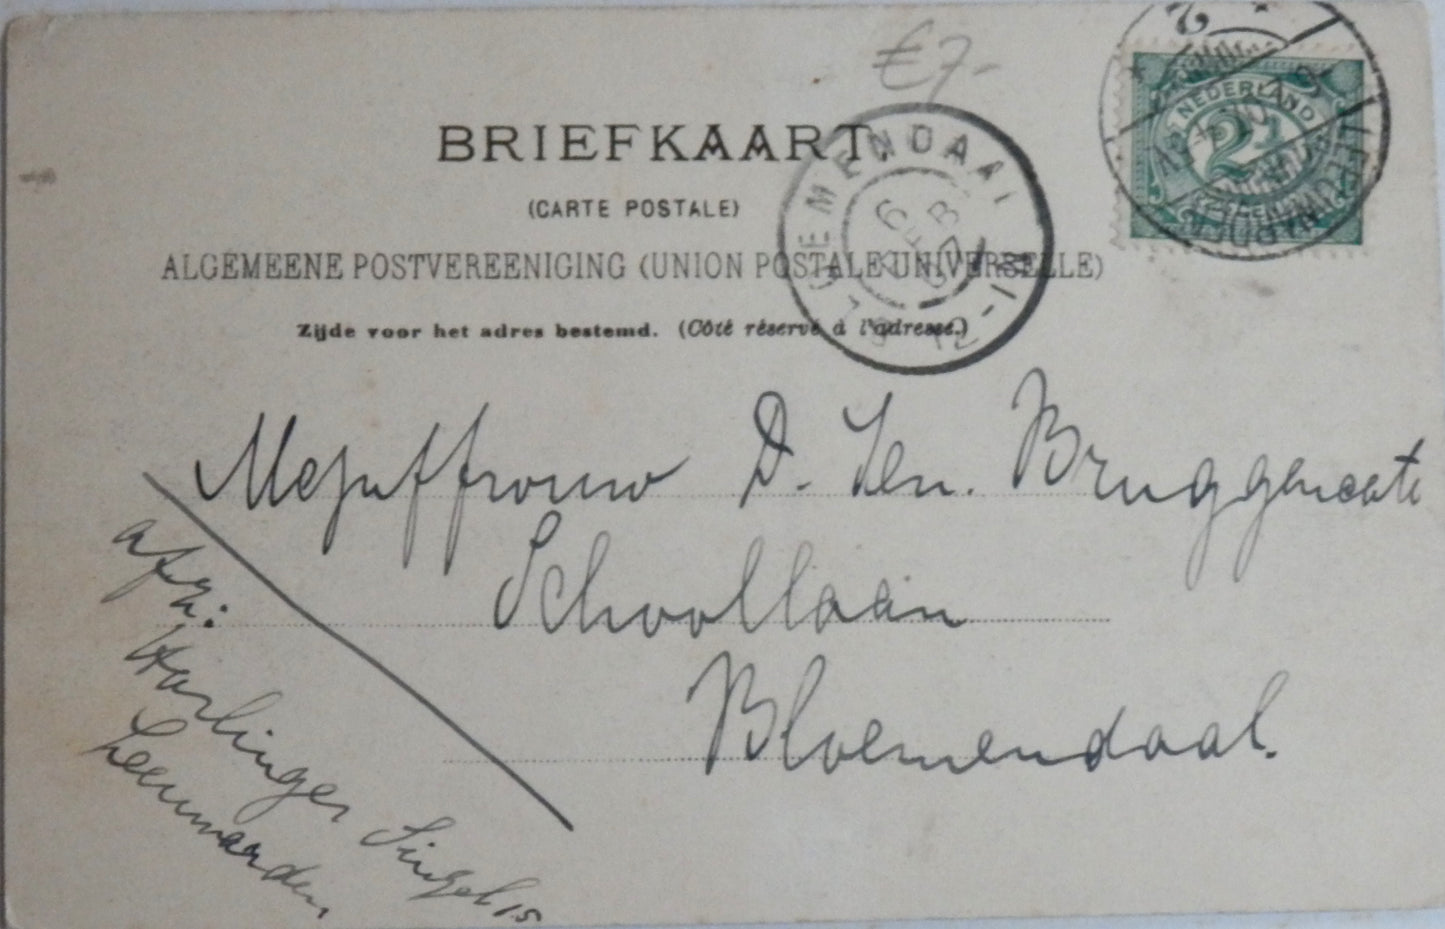 €7-
BRIEFKAART.
(CARTE POSTALE)
ALGEMEENE POSTVEREENIGING (UNION POSTALE UNIVERSELLE)
Zijde voor het adres bestemd. (Côté réservé à l'adresse.)
NEDERLAND
2½
LEEUWARDEN
BLOEMENDAAL
6 FEB 07
Mejuffrouw D. Ten. Bruggencate
Schoollaan
Bloemendaal.
afz:
Harlinger Singel 15
Leeuwarden